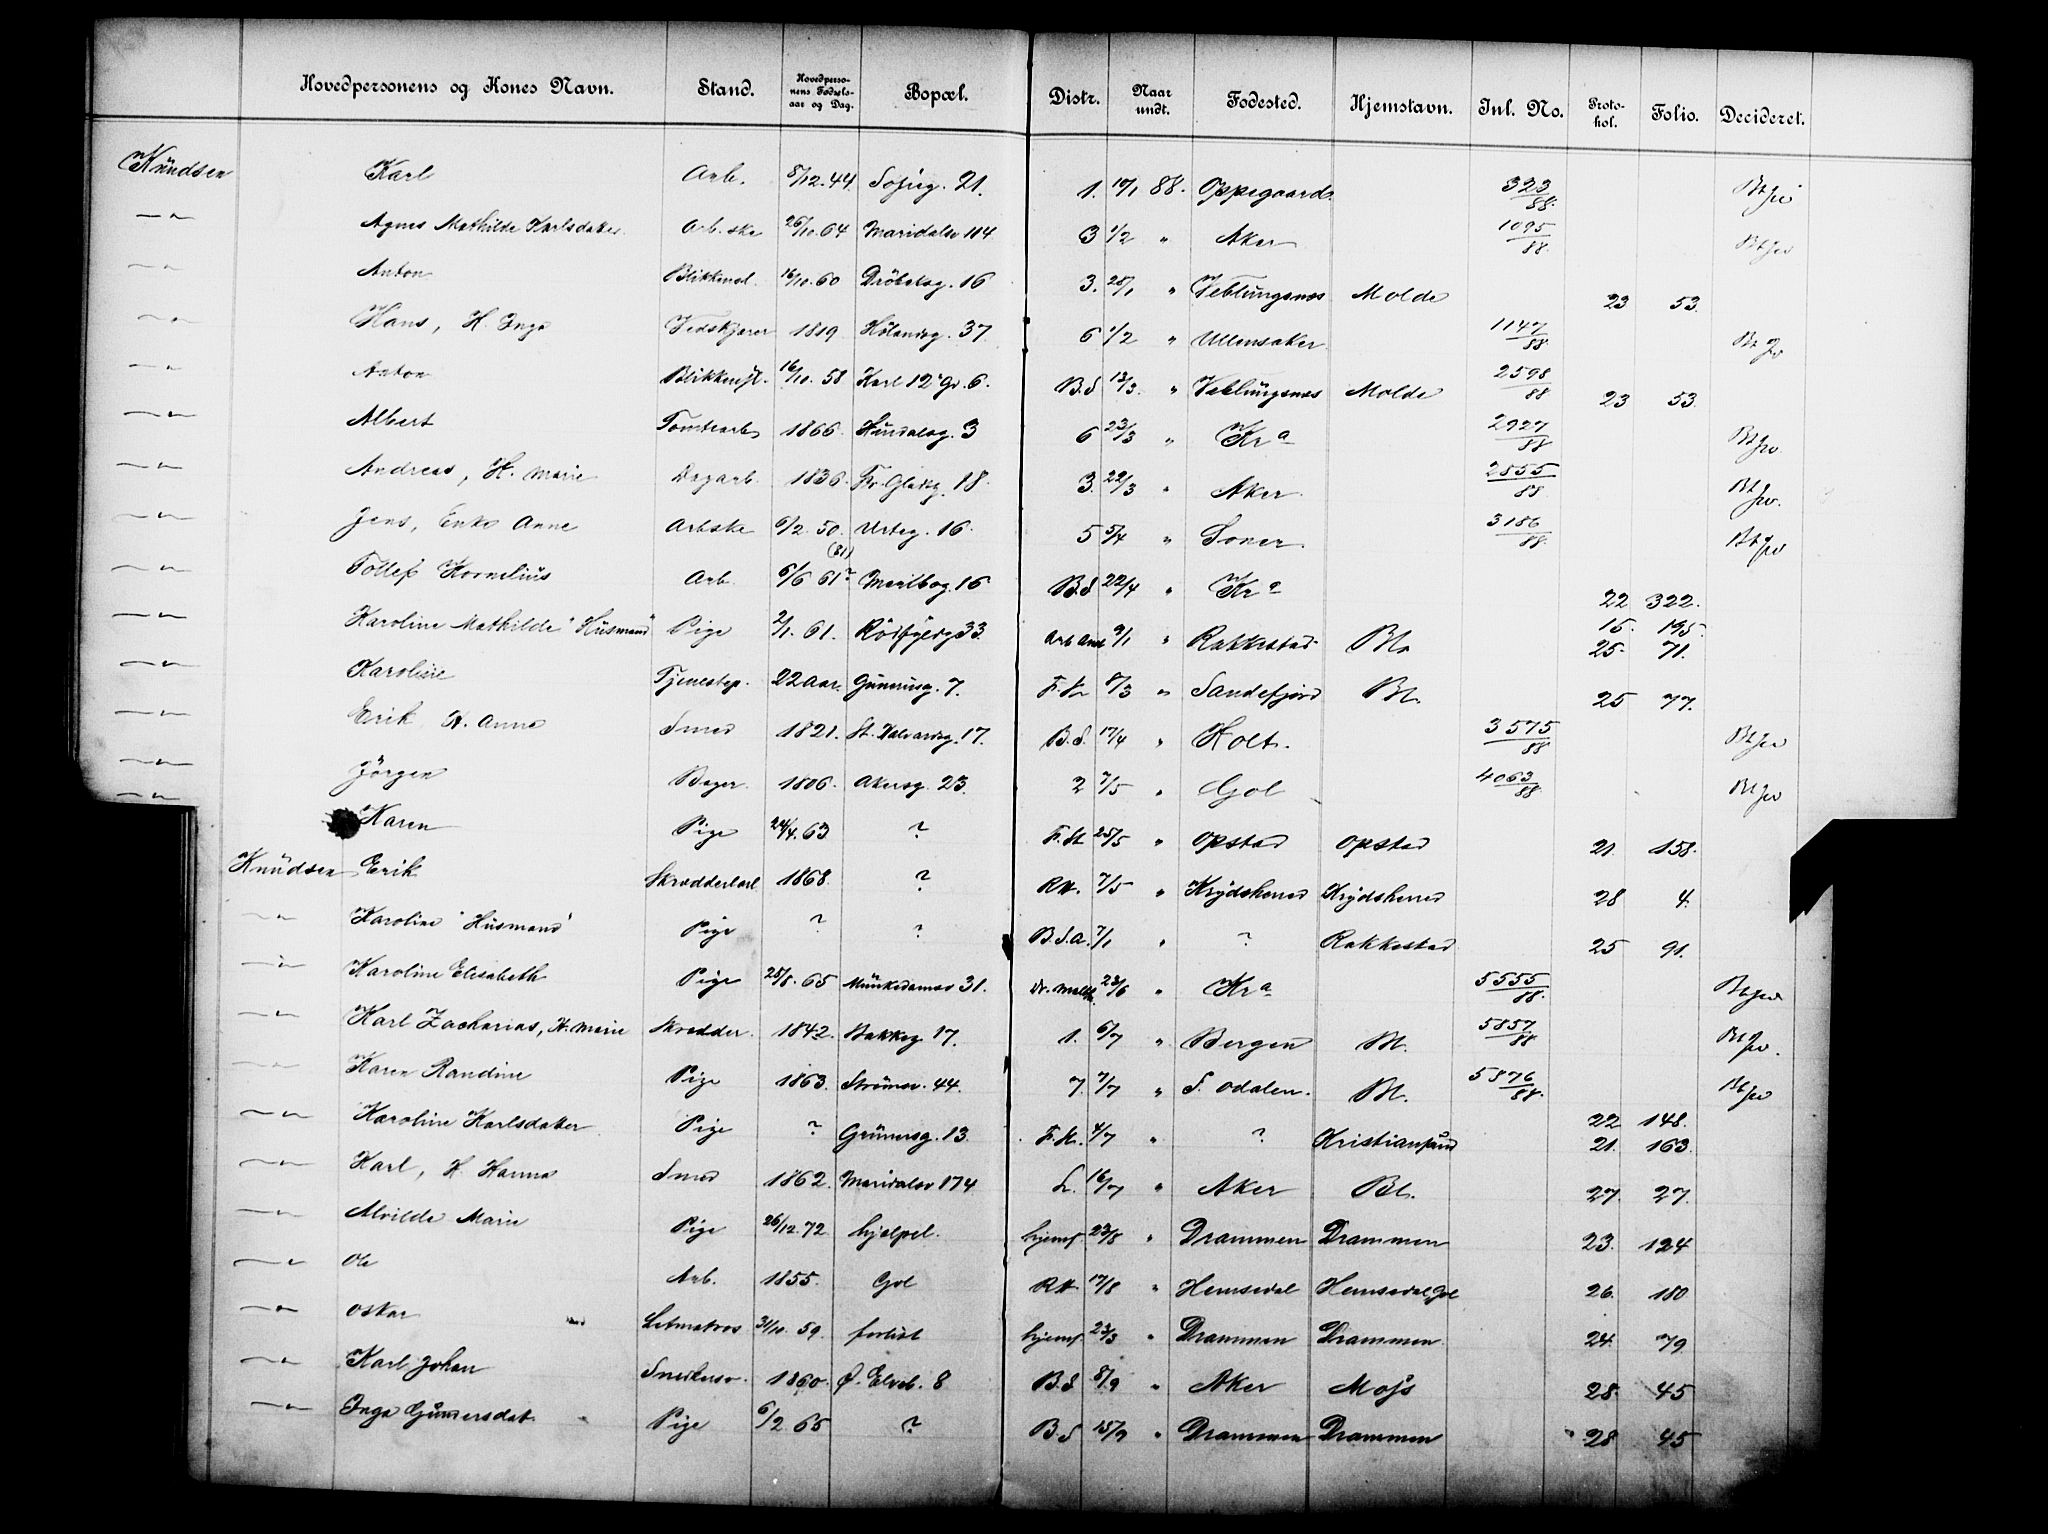 Hovedpersonens og Kones Navn. Stand. Hovedpersonens Fødselsaar og Dag. Bopæl. Distr. Naar undt. Fødested. Hjemstavn. Inl. No. Protokol. Folio. Decideret.
Knudsen Karl Arb. 8/12.44. Sofieg. 21. 1. 10/1 88. Oppegaard 323/88
—"— Agnes Mathilde Karlsdatter Arb.ske 26/10.64 Maridalsv 114 3 1/2 " Aker 1095/88
—"— Anton Blikkensl. 16/10.60 Dröbaksg. 16 3. 28/1 " Veblungsnes Molde 23 53.
—"— Hans, H. Inge Vedskjærer 1819. Hölandsg. 37 6 1/2 " Ullensaker 1147/88
—"— Anton Blikkensl. 16/10.58 Karl 12' Gd. 6. B.S 13/3. " Veblungsnes Molde 2598/88 23 53.
—"— Albert Tomtearb 1866. 3 6 23/3 " Kra 2927/88
—"— Andreas, H. Marie Dagarb. 1836. 18. 3. 22/3 " Aker. 2855/88
—"— Jens, Enke Anne Arbske 6/2.50. Urteg. 16. 5 5/4 " Soner. 3186/88
—"— Tollef Kornelius Arb. 6/6 61? (81) 16 B.S 22/4 " Kra 22 322.
—"— Karoline Mathilde "Husmand" Pige 2/1. 61. Rödfyldg 33. 9/1 " Rakkestad Bl. 15. 195. 25. 71.
—"— Karoline Tjenestep. 22 Aar. Gunerusg. 7. F.K 8/3 " Sandefjord Bl. 25 77.
—"— Erik, H. Anna Smed 1821. St. Halvardsg. 17. B.S. 17/4 " Holt. 3575/88
—"— Jörgen Bager. 1806. Akersg. 23. 2 7/5 " Gol 4063/88
—"— Karen Pige 24/4.63 ? F.K 25/5 " Opstad Opstad 21. 158.
Knudsen Erik Skrædderlærl 1868. ? RK. 7/5 " Krydsherred Krydsherred 28 4.
—"— Karoline "Husmand" Pige ? ? B.S.A. 7/1 " ? Rakkestad 25 91.
—"— Karoline Elisabeth Pige 25/8.65 Munkedamsv 31. 23/6 " Kra 5555/88.
—"— Karl Zacharias, H. Marie Skrædder. 1842. Bakkeg 17. 1. 6/7 " Bergen Bl. 5857/88
—"— Karen Randine Pige 1863. Strömsv. 44. 7. 7/7 " S. Odalen. Bl. 5876/88.
—"— Karoline Karlsdatter Pige ? Grünersg. 13. F.K. 4/7 " ? Kristiansund 22 148. 21. 163.
—"— Karl, H. Hanna Smed 1862. Maridalsv 174 L. 16/7 " Aker Bl. 27. 27.
—"— Alvilde Marie Pige 26/12.72. hjelpel. hjemf. 23/8 " Drammen Drammen 23. 124
—"— Ole Arb. 1855. Gol RK. 17/8 " Hemsedal Hemsedal, Gol 26. 180
—"— Oskar Letmatros 31/10.59. forlist hjemf. 23/3 " Drammen Drammen. 24. 79.
—"— Karl Johan Snedkersv. 1860. Ø. Elveb. 8 B.S 8/9 " Aker Moss 28. 45
—"— Inga Gunersdat. Pige 6/2.65 ? B.S 15/9 " Drammen Drammen 28 45